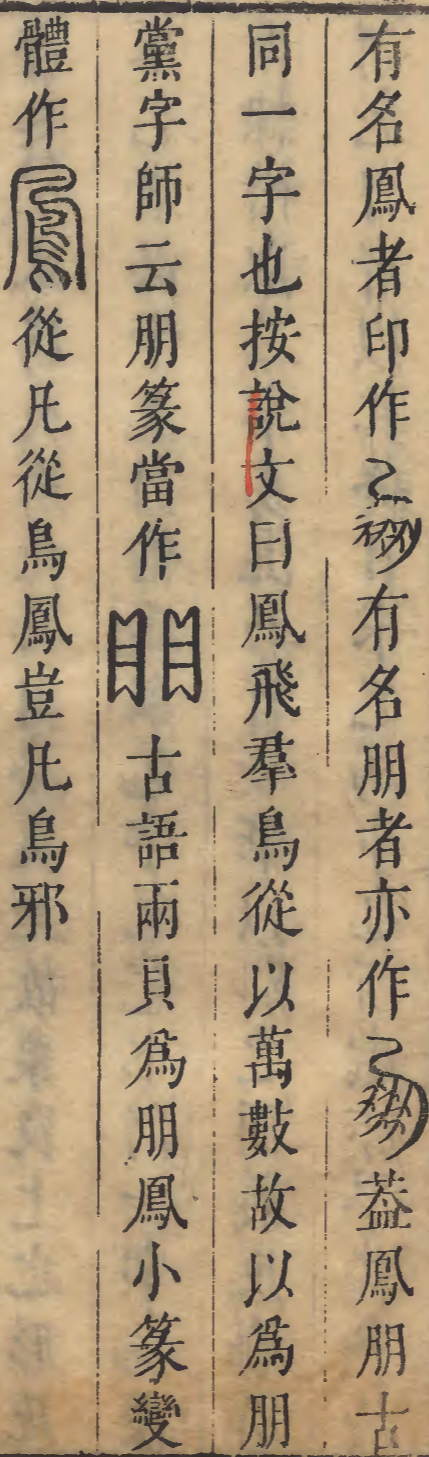 有名鳳者印作有名朋者亦作葢鳳朋古
同一字也按說文曰鳳飛羣鳥從以萬數故以爲朋
黨字師云朋篆當作古語兩貝爲朋鳳小篆變
體作從凡從鳥鳳豈凡鳥邪